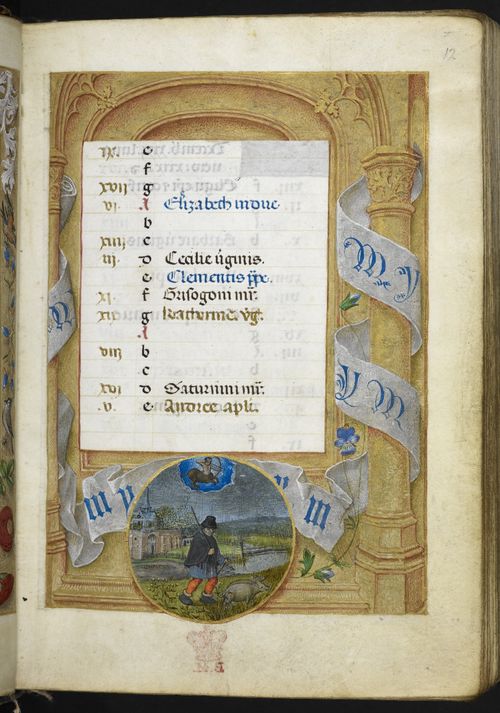 12
ix. e
f
xvii g
vi. A Elizabeth indue
b
xiiii c
iii. d Cecilie virginis.
e Clementis ppe.
xi. f Grisogoni mr.
xix g Katherine vg.
A
viii b
c
xvi d Saturnini mr.
v. e Andree apli.
M Y
Y M
M Y
Y M